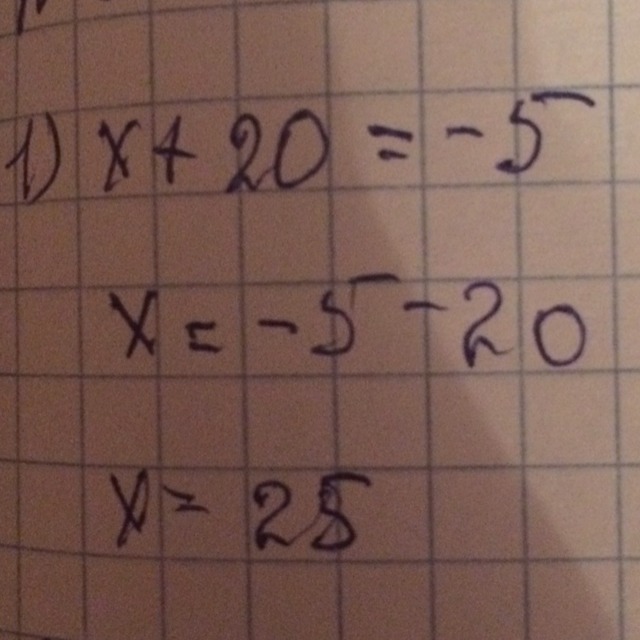 1) x + 20 = -5
x = -5 - 20
x = 25